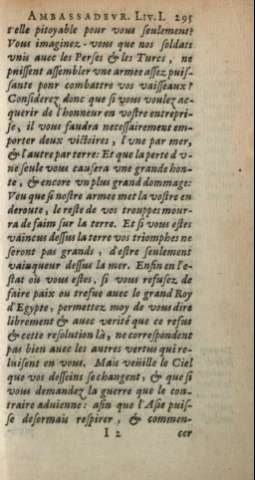 AMBASSADEVR. LIV. I. 295
t'elle pitoyable pour vous seulement?
Vous imaginez-vous que nos soldats
vnis auec les Perses & les Turcs, ne
puissent assembler vne armee assez puis-
sante pour combattre vos vaisseaux?
Considerez donc que si vous voulez ac-
querir de l'honneur en vostre entrepri-
se, il vous faudra necessairement em-
porter deux victoires, l'vne par mer,
& l'autre par terre: Et que la perte d'v-
ne seule vous causera vne grande hon-
te, & encore vn plus grand dommage:
Veu que si nostre armee met la vostre en
deroute, le reste de vos trouppes mour-
ra de faim sur la terre. Et si vous estes
vaincus dessus la terre vos triomphes ne
seront pas grands, d'estre seulement
vainqueur dessus la mer. Enfin en l'e-
stat où vous estes, si vous refusez de
faire paix ou trefue auec le grand Roy
d'Egypte, permettez moy de vous dire
librement & auec verité que ce refus
& cette resolution là, ne correspondent
pas bien auec les autres vertus qui re-
luisent en vous. Mais veüille le Ciel
que vos desseins se changent, & que si
vous demandez la guerre que le con-
traire aduienne: afin que l'Asie puis-
se desormais respirer, & commen-
I 2 cer